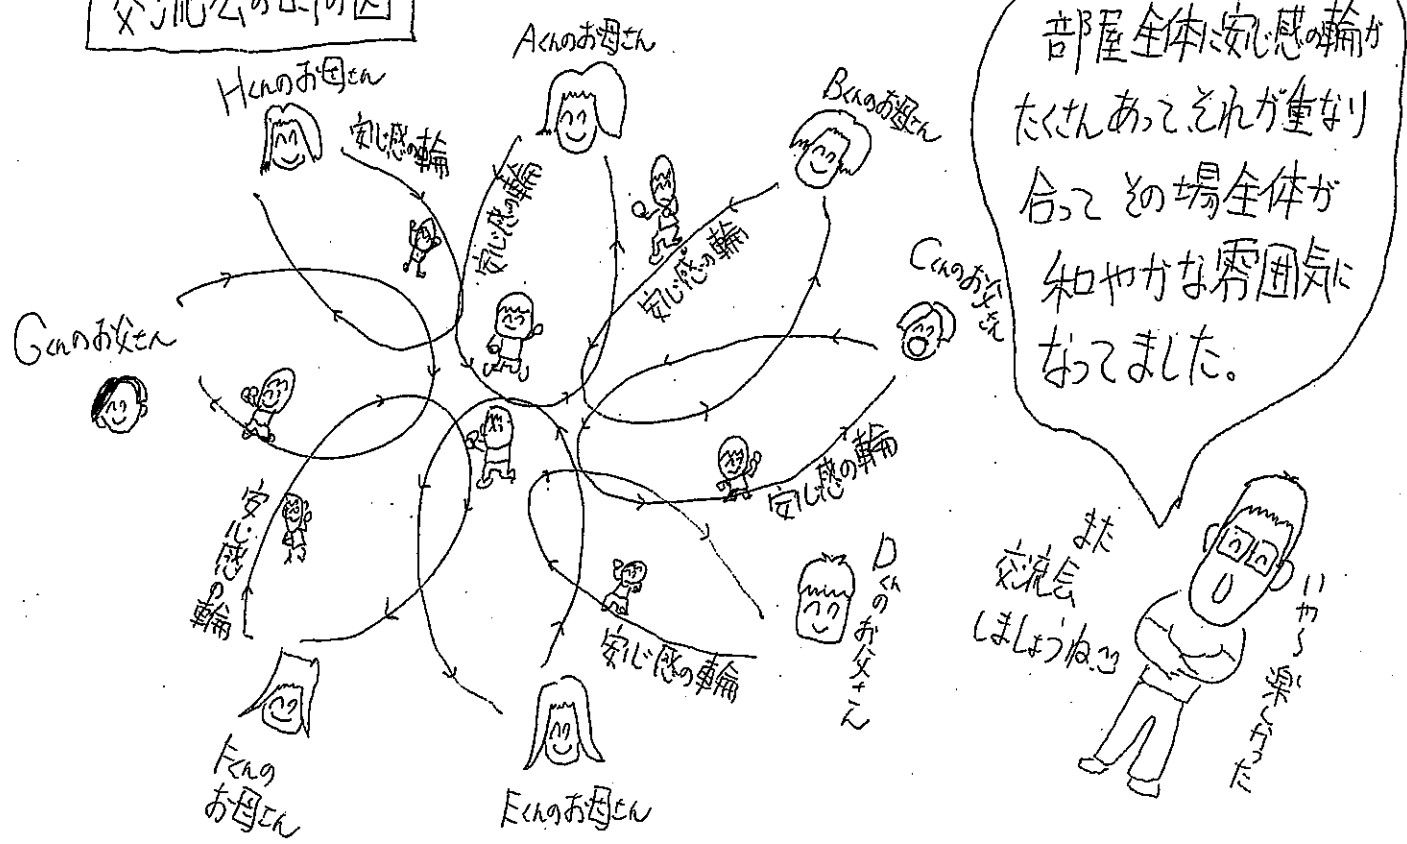 交流会の時の図
Aくんのお母さん
Hくんのお母さん
Bくんのお母さん
安心感の輪
安心感の輪
安心感の輪
Cくんのお父さん
Gくんのお父さん
安心感の輪
安心感の輪
安心感の輪
Dくんのお父さん
Fくんの
お母さん
Eくんのお母さん
部屋全体に安心感の輪が
たくさんあって、それが重なり
合って その場全体が
和やかな雰囲気に
なってました。
また
交流会
しましょうね
いや〜 楽しかった